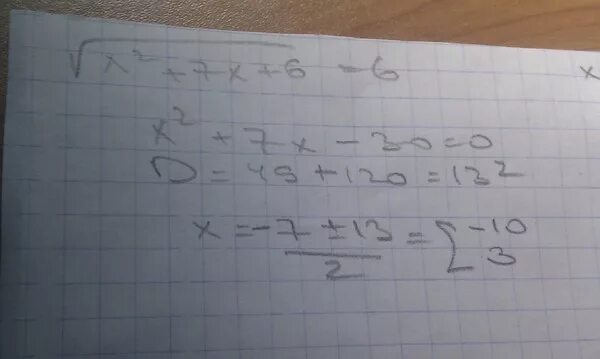 √x² + 7x + 6 = 6
x
x² + 7x - 30 = 0
D = 49 + 120 = 13²
x = -7 ± 13 / 2 = [ -10 3